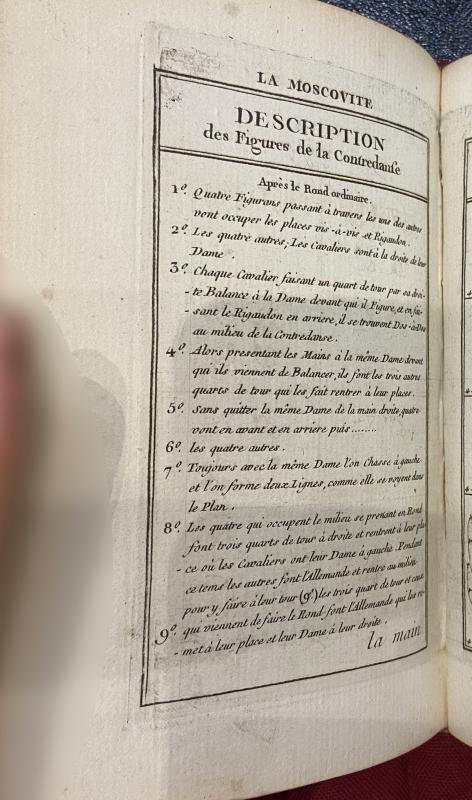 LA MOSCOVITE
DESCRIPTION
des Figures de la Contredanse
Après le Rond ordinaire.
1º. Quatre Figurans passant à travers les uns des autres
vont occuper les places vis-à-vis et Rigaudon.
2º. Les quatre autres; Les Cavaliers sont à la droite de leur
Dame.
3º. Chaque Cavalier faisant un quart de tour par sa droi-
-te Balance à la Dame devant qui il Figure, et en fai-
-sant le Rigaudon en arriere, il se trouvent Dos-à-Dos
au milieu de la Contredanse.
4º. Alors presentant les Mains à la même Dame devant
qui ils viennent de Balancer, ils font les trois autres
quarts de tour qui les fait rentrer à leur places.
5º. Sans quitter la même Dame de la main droite, quatre
vont en avant et en arriere puis........
6º. les quatre autres.
7º. Toujours avec la même Dame l'on Chasse à gauche
et l'on forme deux Lignes, comme elle se voyent dans
le Plan.
8º. Les quatre qui occupent le milieu se prenant en Rond
font trois quarts de tour à droite et rentrent à leur pla-
-ce où les Cavaliers ont leur Dame à gauche. Pendant
ce tems les autres font l'Allemande et rentre au milieu
pour y faire à leur tour (9º.) les trois quart de tour et ceux
9º. qui viennent de faire le Rond font l'Allemande qui les re-
-met à leur place et leur Dame à leur droite.
la main